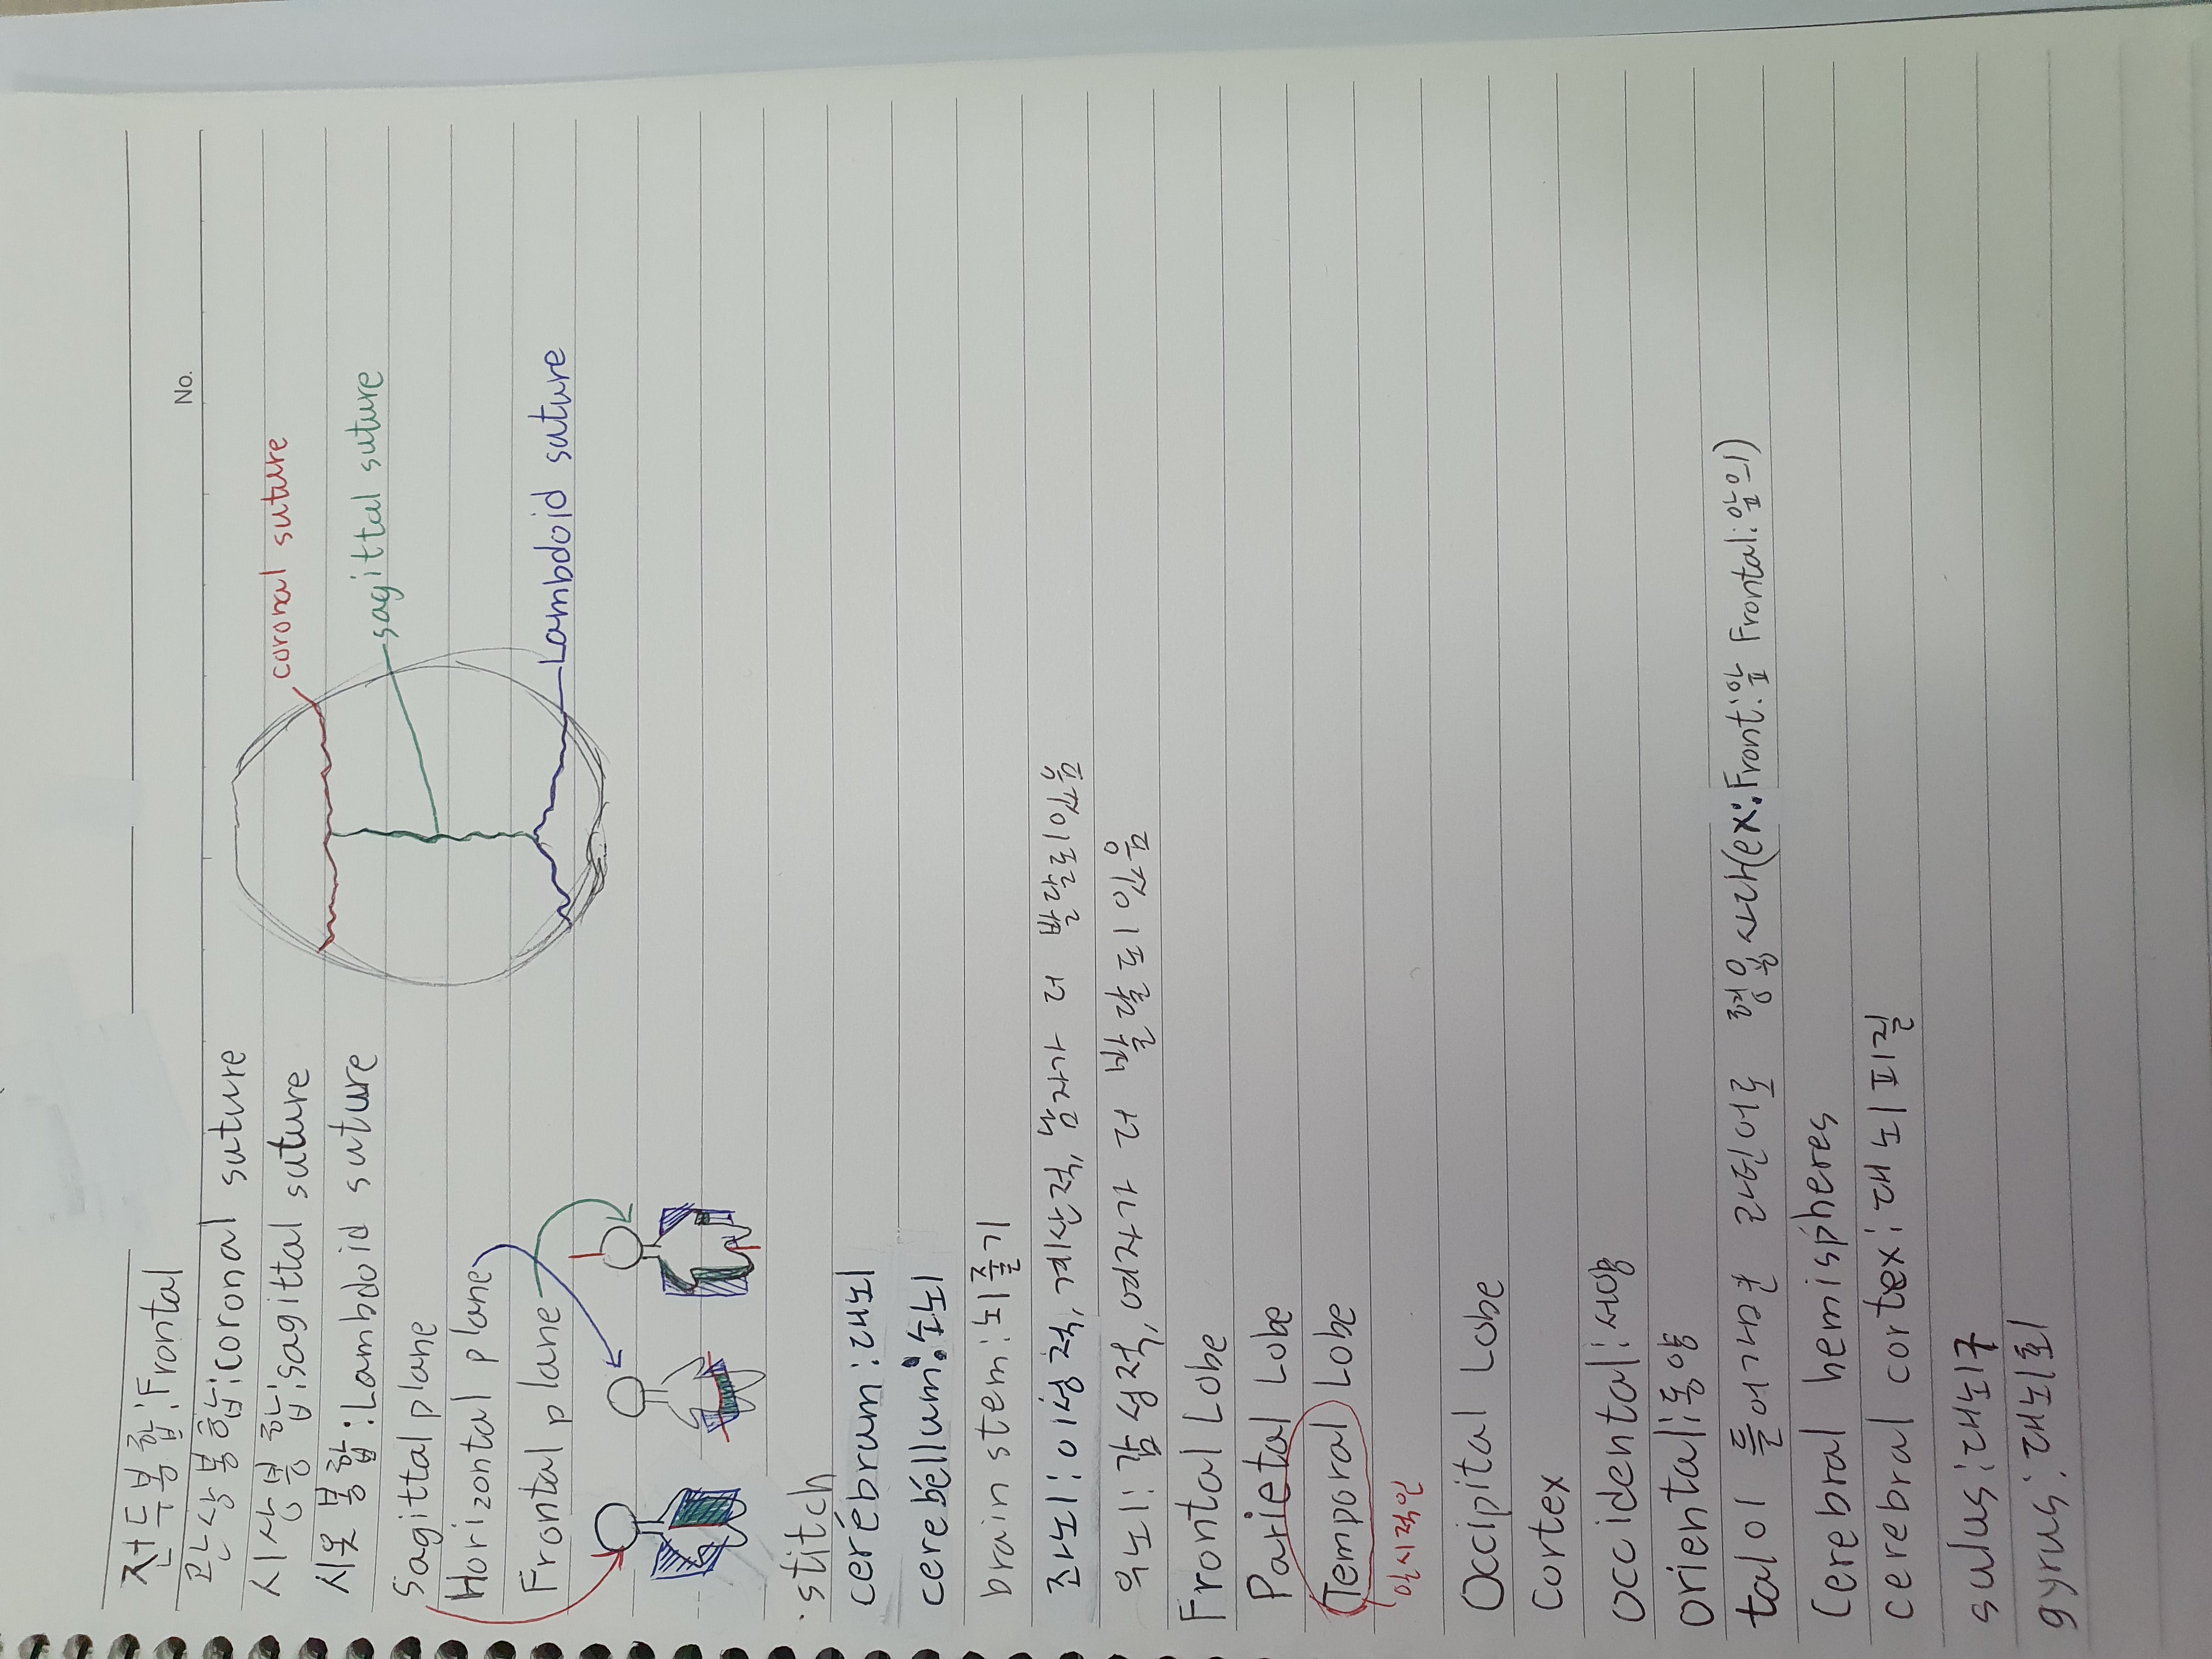 No.
전두봉합:Frontal
관상봉합:coronal suture
시상봉합:sagittal suture
시옷봉합:Lambdoid suture
coronal suture
sagittal suture
Lambdoid suture
Sagittal plane
Horizontal plane
Frontal plane
·stitch
cerebrum:대뇌
cerebellum:소뇌
brain stem:뇌줄기
좌뇌:이성적, 계산적, 남자가 더 발달되있음
우뇌:감성적, 여자가 더 발달되있음
Frontal Lobe
Parietal Lobe
Temporal Lobe
일시적인
Occipital Lobe
Cortex
Occidental:서양
oriental:동양
tal이 들어가면 라틴어로 형용사다(ex:Front:앞 Frontal:앞의)
Cerebral hemispheres
cerebral cortex:대뇌피질
sulus:대뇌구
gyrus:대뇌회